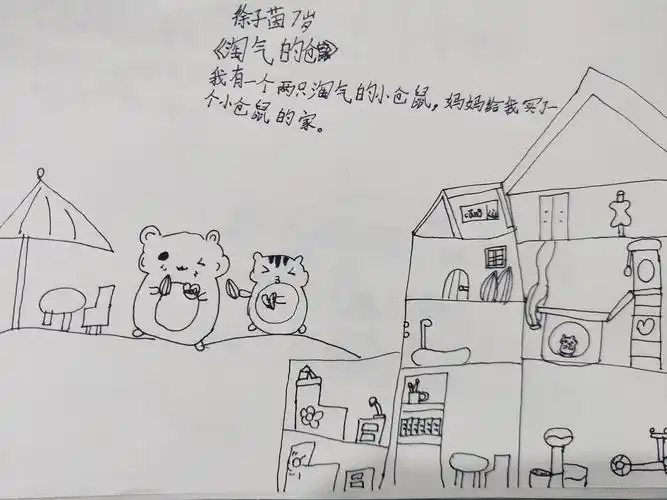 徐子茵 7岁
《淘气的仓鼠》
我有一个两只淘气的小仓鼠,妈妈给我买了一
个小仓鼠的家。